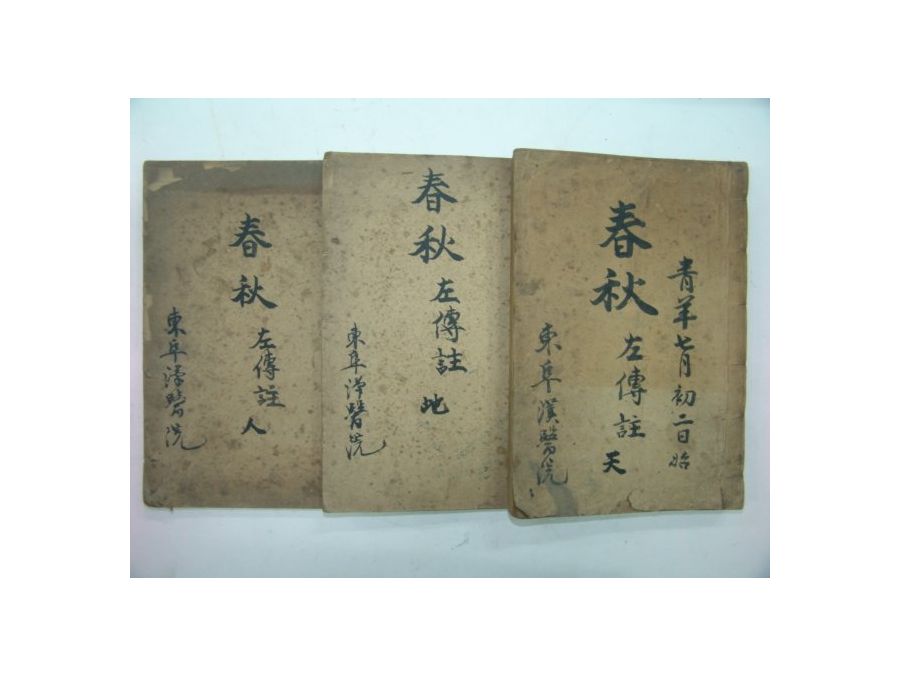 青羊七月初二日始
春秋左傳註天
東阜漢醫院
春秋左傳註地
東阜漢醫院
春秋左傳註人
東阜漢醫院